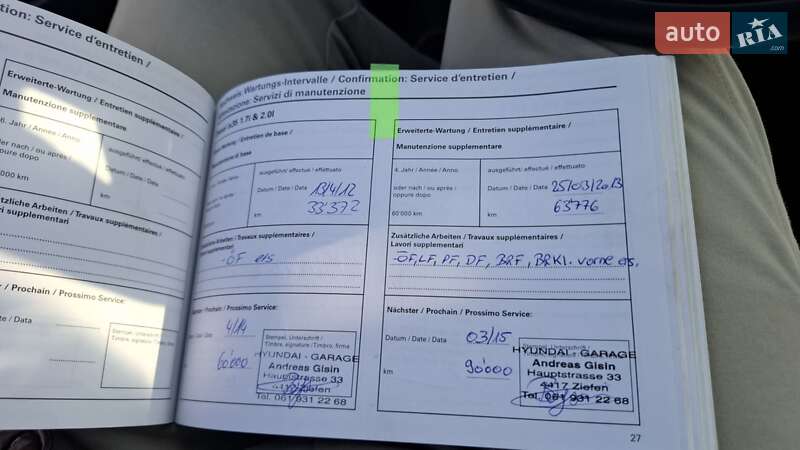 auto RIA.com
tion: Service d'entretien /
Erweiterte-Wartung / Entretien supplémentaire /
Manutenzione supplementare
6. Jahr / Année / Anno
ausgeführt / effectué / effettuato
oder nach / ou après /
oppure dopo
Datum / Date / Data
000 km
km
sätzliche Arbeiten / Travaux supplémentaires /
vori supplementari
r / Prochain / Prossimo Service:
/ Date / Data
Stempel, Unterschrift /
Timbre, signature / Timbro, firma
Wartungs-Intervalle / Confirmation: Service d'entretien /
Servizi di manutenzione
ix35 1.7l & 2.0l
/ Entretien de base /
di base
ausgeführt / effectué / effettuato
Datum / Date / Data 13/4/12
km 33'372
Arbeiten / Travaux supplémentaires /
supplementari
-ÖF ers
/ Prochain / Prossimo Service:
4/14
60'000
Stempel, Unterschrift /
Timbre, signature / Timbro, firma
HYUNDAI - GARAGE
Andreas Gisin
Hauptstrasse 33
4417 Ziefen
Tel. 061 931 22 68
Erweiterte-Wartung / Entretien supplémentaire /
Manutenzione supplementare
4. Jahr / Année / Anno
ausgeführt / effectué / effettuato
oder nach / ou après /
oppure dopo
Datum / Date / Data 25/03/2013
60'000 km
km 63'776
Zusätzliche Arbeiten / Travaux supplémentaires /
Lavori supplementari
-ÖF, LF, PF, DF, BRF, BRKl. vorne ers.
Nächster / Prochain / Prossimo Service:
Datum / Date / Data 03/15
km 90'000
Stempel, Unterschrift /
HYUNDAI - GARAGE
Andreas Gisin
Hauptstrasse 33
4417 Ziefen
Tel. 061 931 22 68
27